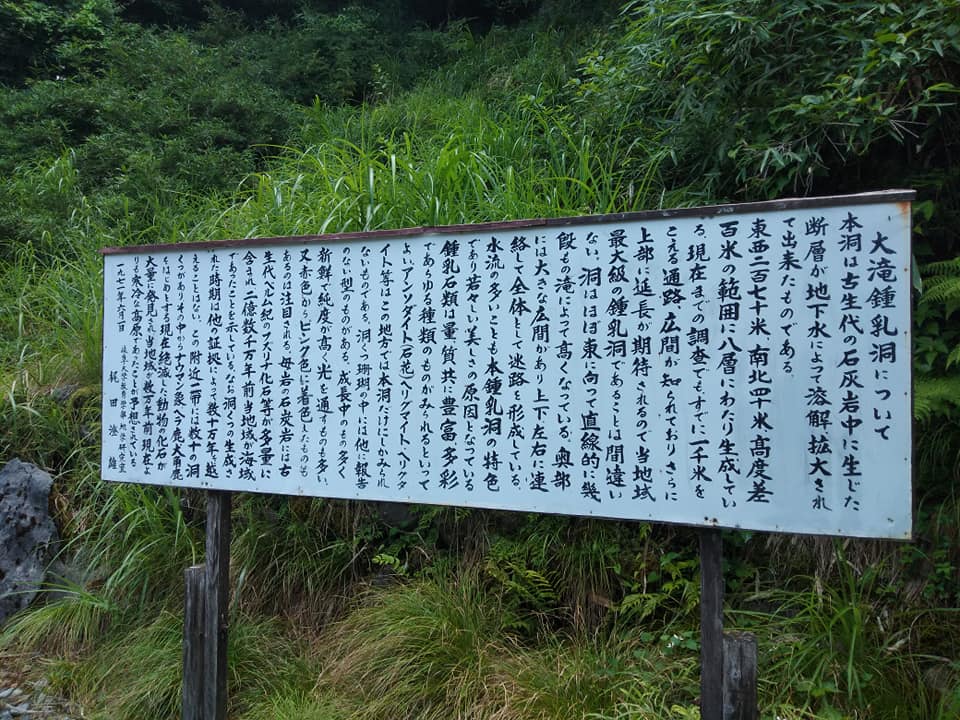 大滝鍾乳洞について
本洞は古生代の石灰岩中に生じた
断層が地下水によって溶解拡大され
て出来たものである。
東西二百七十米 南北四十米高度差
百米の範囲に八層にわたり生成してい
る、現在までの調査でもすでに一千米を
こえる通路、広間が知られておりさらに
上部に延長が期待されるので当地域
最大級の鍾乳洞であることは間違い
ない。洞はほぼ東に向って直線的に幾
段もの滝によって高くなっている。奥部
には大きな広間があり上下左右に連
絡して全体として迷路を形成している。
水流の多いことも本鍾乳洞の特色
であり若々しい美しさの原因となっている
鍾乳石類は量、質共に豊富、多彩
であらゆる種類のものがみられるといって
よいアンソダイト(石花)ヘリグマイト、ヘリクタ
イト等はこの地方では本洞だけにしかみられ
ないものである。洞くつ珊瑚の中には他に報告
のない型のものがある。成長中のもの多く
新鮮で純度が高く光を通すものも多い、
又赤色からピンク色に着色したものも
あるのは注目される。母岩の石灰岩には古
生代ペルム紀のフズリナ化石等が多量に
含まれ二億数千万年前当地域が海域
であったことを示している。なお洞くつの生成さ
れた時期は他の証拠によって数十万年を越
えることはない。この附近一帯には数十の洞
くつがありその中からナウマン象ヘラ鹿大角鹿
をはじめとする現在絶滅した動物の化石が
大量に発見され当地域が数万年前現在よ
りも寒冷な高原であったことが予想されている
一九七二年六月一日
岐阜大学教育学部地学研究室
梶田澄雄